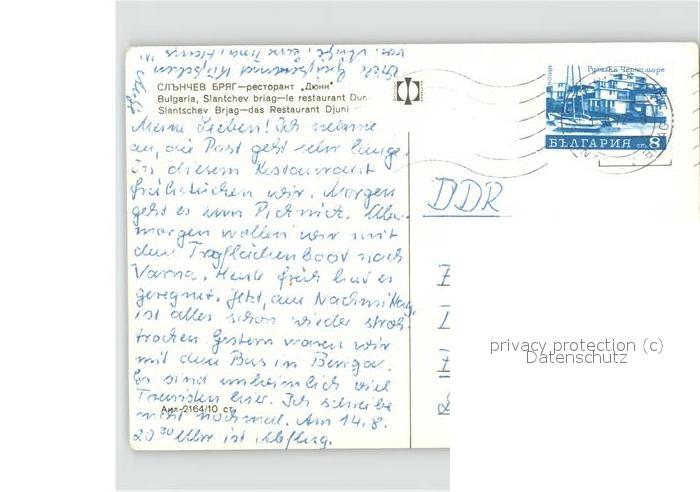 СЛЪНЧЕВ БРЯГ—ресторант „Дюни“
Bulgaria, Slantchev briag—le restaurant Duni
Slantschev Brjag—das Restaurant Djuni
Meine Lieben! Ich nehme
an, die Post geht sehr lange.
In diesem Restaurant
frühstücken wir. Morgen
geht es zum Picknick. Über-
morgen wollen wir mit
dem Tragflächenboot nach
Varna. Heute früh hat es
geregnet. Jetzt, am Nachmittag,
ist alles schon wieder stroh-
trocken. Gestern waren wir
mit dem Bus in Burgas.
Es sind unheimlich viel
Touristen hier. Ich schreibe
nicht nochmal. Am 14.8.
20³⁰ Uhr ist Abflug.
Акл-2164/10 ст.
поща
Руски Черноморе
БЪЛГАРИЯ ст. 8
DDR
privacy protection (c)
Datenschutz